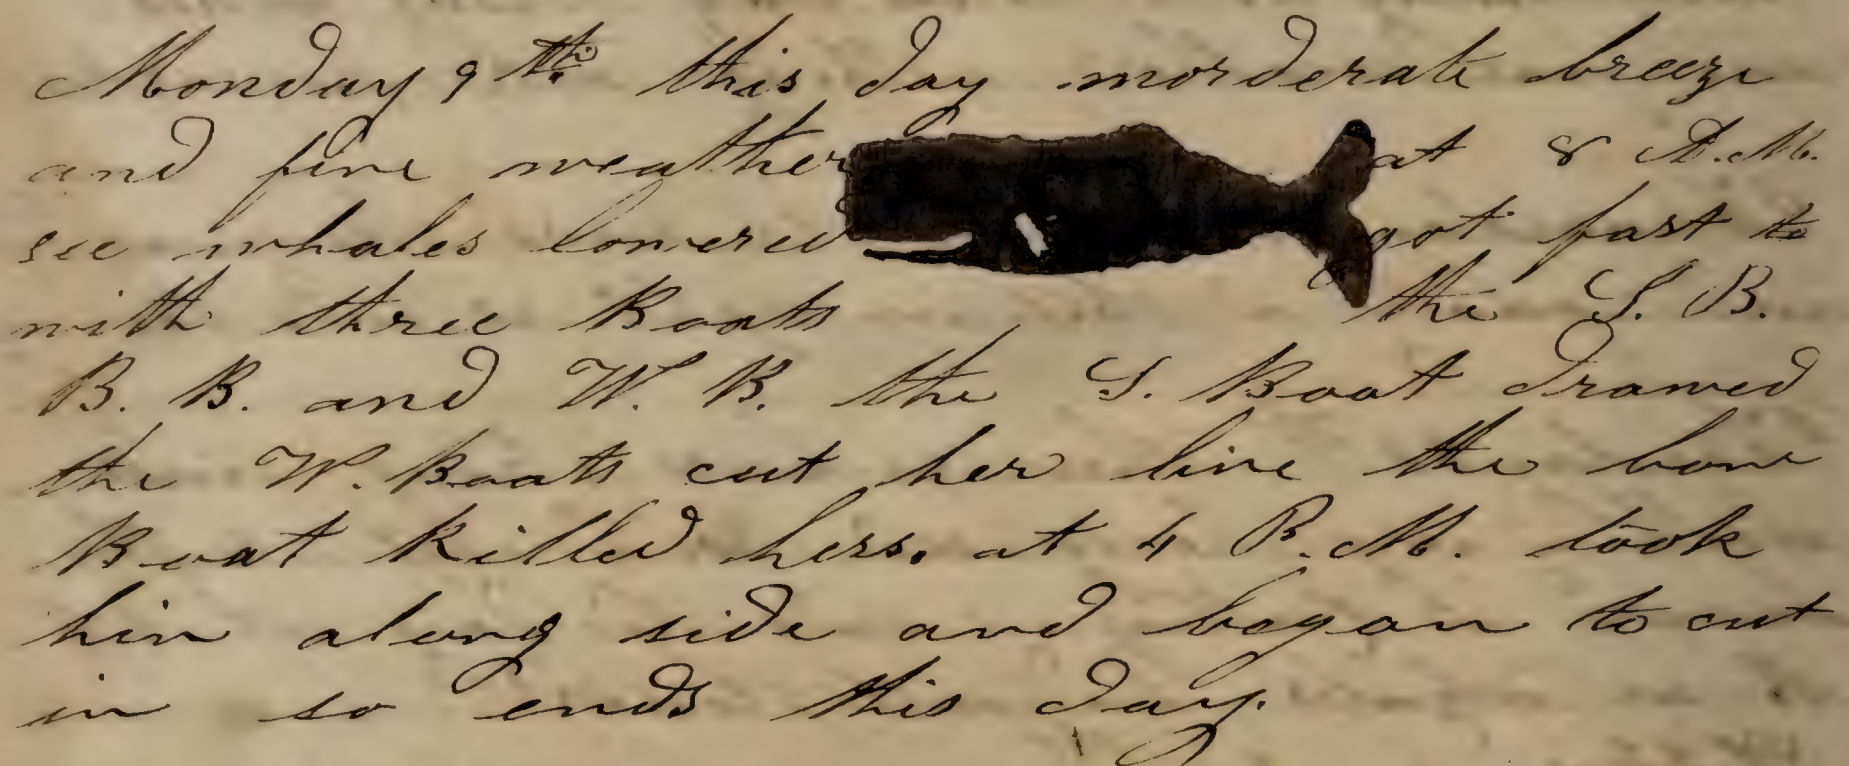 Monday 9th this day morderate breeze
and fine weather at 8 A.M.
see whales lowered got fast to
with three Boats the S. B.
B. B. and W. B. the S. Boat drawed
the W. Boats cut her line the bow
Boat killed hers. at 4 P.M. took
him along side and began to cut
in so ends this day.